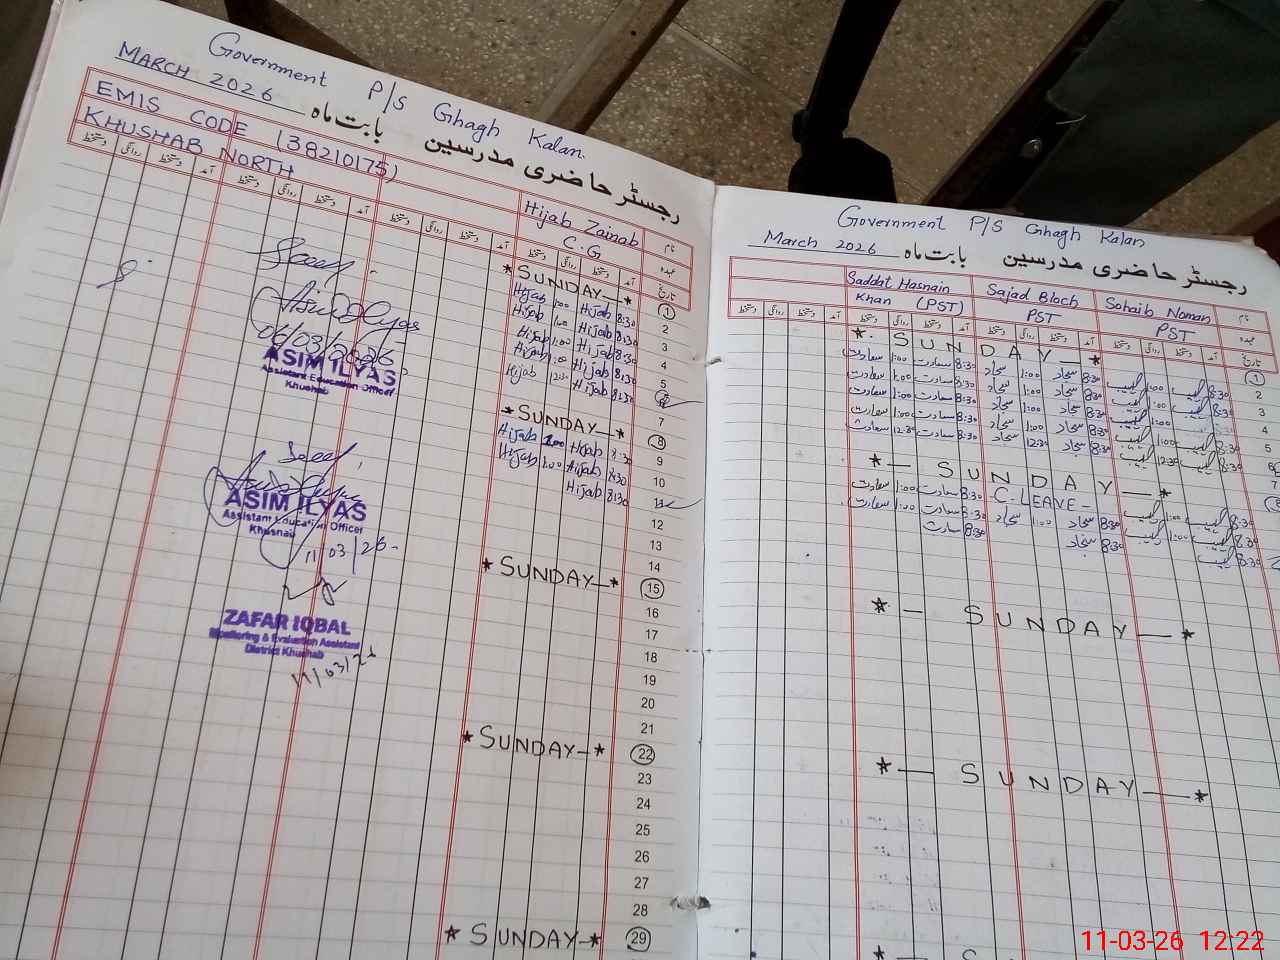 Government P/S Ghagh Kalan.
MARCH 2026 بابت ماہ رجسٹر حاضری مدرسین
EMIS CODE (38210175)
KHUSHAB NORTH
Hijab Zainab نام
C.G عہدہ
دستخط روانگی دستخط آمد دستخط روانگی دستخط آمد دستخط روانگی دستخط آمد دستخط روانگی دستخط آمد تاریخ
* SUNDAY — * 1
Hijab 1:00 Hijab 8:30 2
Hijab 1:00 Hijab 8:30 3
Hijab 1:00 Hijab 8:30 4
Hijab 1:00 Hijab 8:30 5
Hijab 12:30 Hijab 8:30 6
7
* SUNDAY — * 8
Hijab 1:00 Hijab 8:30 9
Hijab 1:00 Hijab 8:30 10
Hijab 8:30 11
12
13
14
* SUNDAY — * 15
16
17
18
19
20
21
* SUNDAY — * 22
23
24
25
26
27
28
* SUNDAY — * 29
06/03/2026
ASIM ILYAS
Assistant Education Officer
Khushab
ASIM ILYAS
Assistant Education Officer
Khushab
11/03/26
ZAFAR IQBAL
Monitoring & Evaluation Assistant
District Khushab
11/03/26
Government P/S Ghagh Kalan
March 2026 بابت ماہ رجسٹر حاضری مدرسین
Saddat Hasnain Sajad Bloch Sohaib Noman نام
Khan (PST) PST PST عہدہ
دستخط روانگی دستخط آمد دستخط روانگی دستخط آمد دستخط روانگی دستخط آمد دستخط روانگی دستخط آمد تاریخ
* — SUNDAY — * 1
سعادت 1:00 سعادت 8:30 سجاد 1:00 سجاد 8:30 1:00 8:30 2
سعادت 1:00 سعادت 8:30 سجاد 1:00 سجاد 8:30 1:00 8:30 3
سعادت 1:00 سعادت 8:30 سجاد 1:00 سجاد 8:30 1:00 8:30 4
سعادت 1:00 سعادت 8:30 سجاد 1:00 سجاد 8:30 1:00 8:30 5
سعادت 12:30 سعادت 8:30 سجاد 12:30 سجاد 8:30 12:30 8:30 6
7
* — SUNDAY — *
سعادت 1:00 سعادت 8:30 - C. LEAVE - 1:00 8:30
سعادت 1:00 سعادت 8:30 سجاد 1:00 سجاد 8:30 1:00 8:30
سعادت 8:30 سجاد 8:30 8:30
* — SUNDAY — *
* — SUNDAY — *
11-03-26 12:22